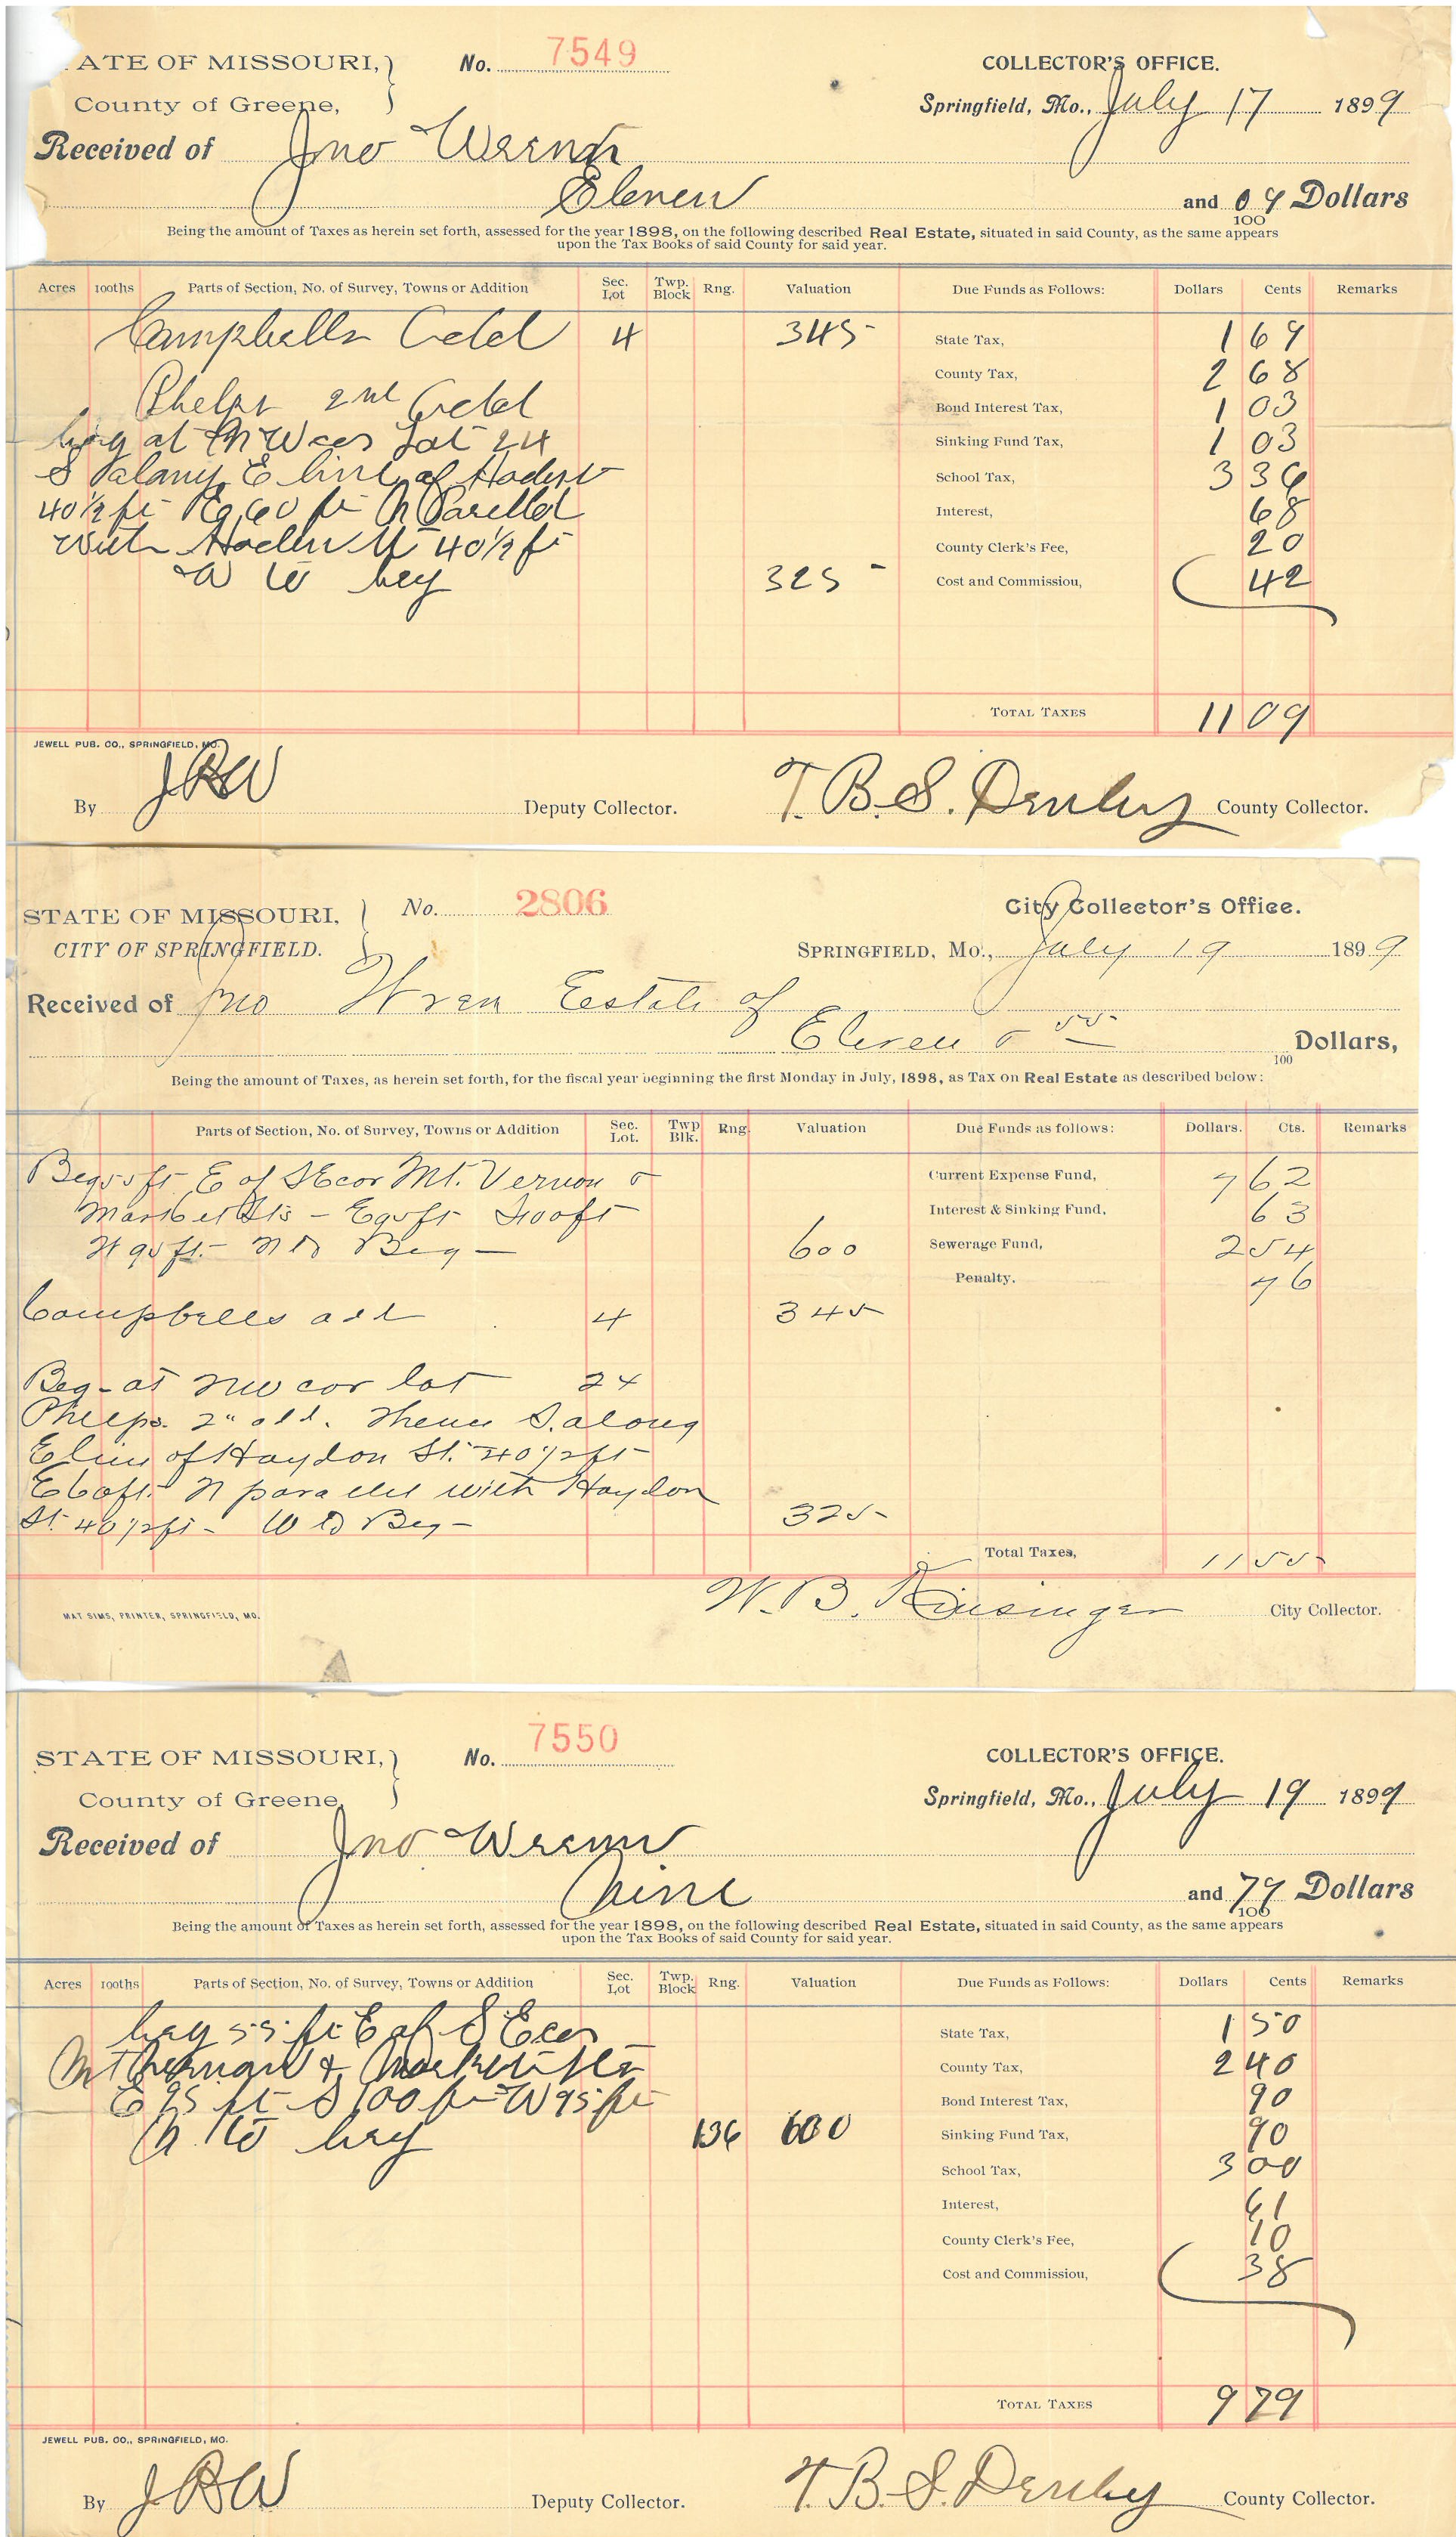 ATE OF MISSOURI, No. 7549 COLLECTOR'S OFFICE.
County of Greene, Springfield, Mo., July 17 1899
Received of Jno Wrenn
Eleven and 09 Dollars
100
Being the amount of Taxes as herein set forth, assessed for the year 1898, on the following described Real Estate, situated in said County, as the same appears
upon the Tax Books of said County for said year.
Acres 100ths Parts of Section, No. of Survey, Towns or Addition Sec. Lot Twp. Block Rng. Valuation Due Funds as Follows: Dollars Cents Remarks
Campbells Add 4 345- State Tax, 1 69
County Tax, 2 68
Phelps 2nd Add Bond Interest Tax, 1 03
beg at NW cor Lot 24 Sinking Fund Tax, 1 03
S along E line of School Tax, 3 36
40 1/2 ft E 60 ft N Parallel Interest, 68
with 40 1/2 ft County Clerk's Fee, 20
W to beg 325- Cost and Commission, 42
TOTAL TAXES 11 09
JEWELL PUB. CO., SPRINGFIELD, MO.
By JBW Deputy Collector. T. B. S. Denby County Collector.
STATE OF MISSOURI, No. 2806 City Collector's Office.
CITY OF SPRINGFIELD. SPRINGFIELD, Mo., July 19 1899
Received of Jno Wren Estate of
Eleven & 55 Dollars,
100
Being the amount of Taxes, as herein set forth, for the fiscal year beginning the first Monday in July, 1898, as Tax on Real Estate as described below:
Parts of Section, No. of Survey, Towns or Addition Sec. Lot. Twp Blk. Rng. Valuation Due Funds as follows: Dollars. Cts. Remarks
Beg 55 ft E of SE cor Mt. Vernon & Current Expense Fund, 7 62
Market Sts - E 95 ft S 100 ft Interest & Sinking Fund, 63
W 95 ft - N to Beg - 600 Sewerage Fund, 2 54
Penalty. 76
Campbells add 4 345
Beg - at NW cor lot 24
Phelps 2" add. Thence S. along
E line of Haydon St. 40 1/2 ft
E 60 ft - N parallel with Haydon
St. 40 1/2 ft - W to Beg - 325-
Total Taxes, 11 55
MAT SIMS, PRINTER, SPRINGFIELD, MO. W. B. City Collector.
STATE OF MISSOURI, No. 7550 COLLECTOR'S OFFICE.
County of Greene, Springfield, Mo., July 19 1899
Received of Jno Wrenn
Nine and 79 Dollars
100
Being the amount of Taxes as herein set forth, assessed for the year 1898, on the following described Real Estate, situated in said County, as the same appears
upon the Tax Books of said County for said year.
Acres 100ths Parts of Section, No. of Survey, Towns or Addition Sec. Lot Twp. Block Rng. Valuation Due Funds as Follows: Dollars Cents Remarks
beg 55 ft E of SE cor State Tax, 1 50
Mt Vernon & Market Sts County Tax, 2 40
E 95 ft S 100 ft W 95 ft Bond Interest Tax, 90
N to beg 136 600 Sinking Fund Tax, 90
School Tax, 3 00
Interest, 61
County Clerk's Fee, 10
Cost and Commission, 38
TOTAL TAXES 9 79
JEWELL PUB. CO., SPRINGFIELD, MO.
By JBW Deputy Collector. T. B. S. Denby County Collector.